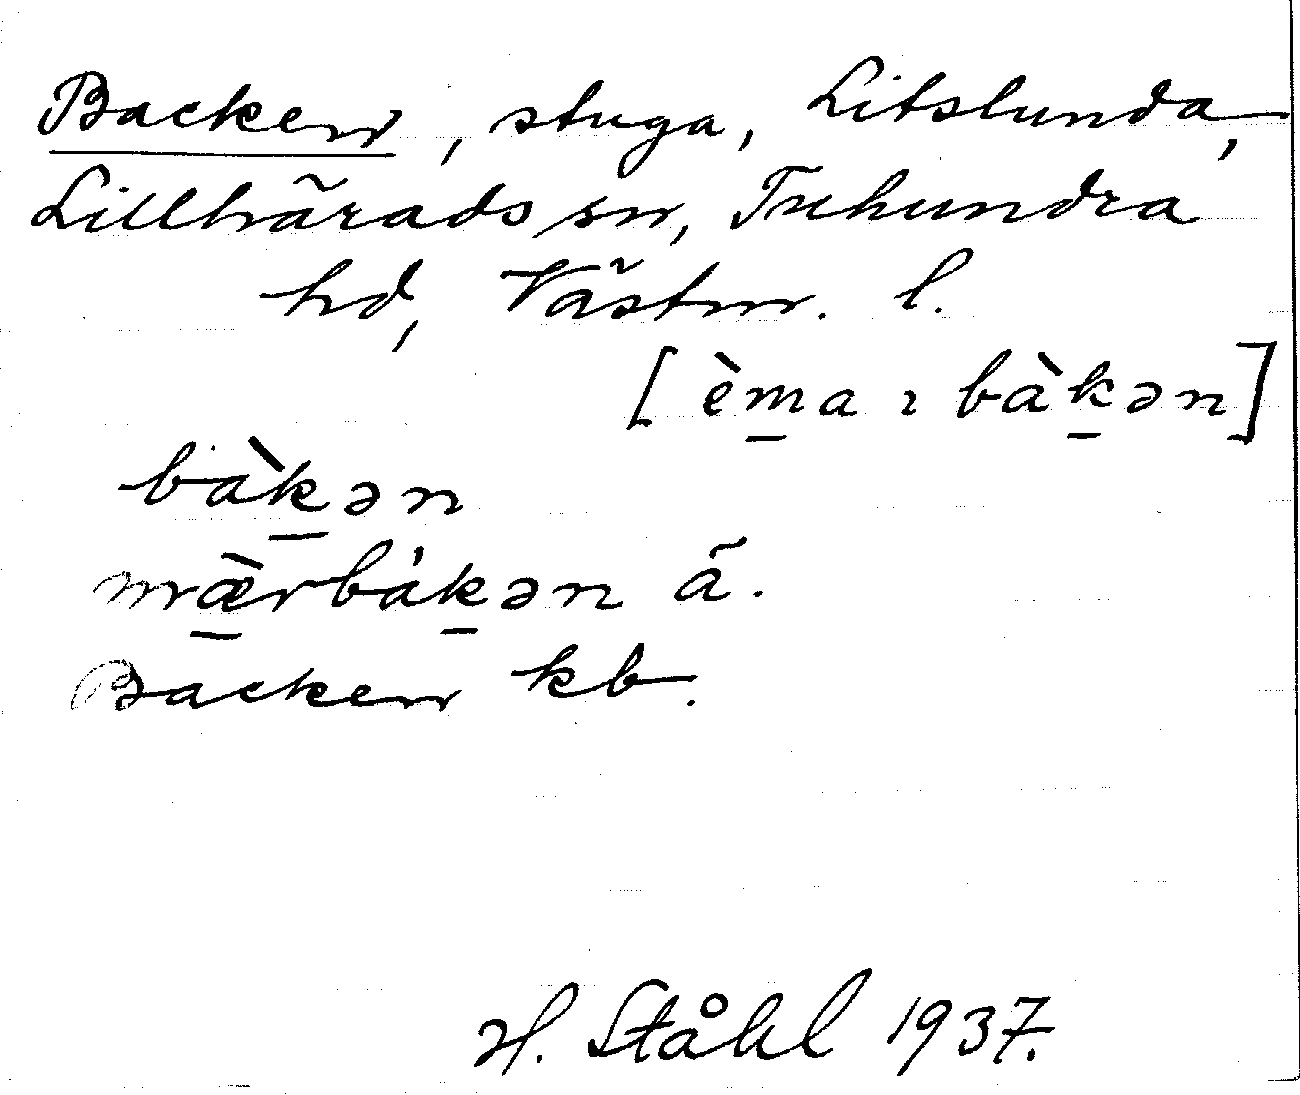 Backen, stuga, Litslunda,
Lillhärads sn, Tuhundra
hd, Västm. l.
[èm̲a ı bàk̲ən]
bàk̲ən
mæ̲̀rbák̲ən ä.
Backen kb.
H. Ståhl 1937.